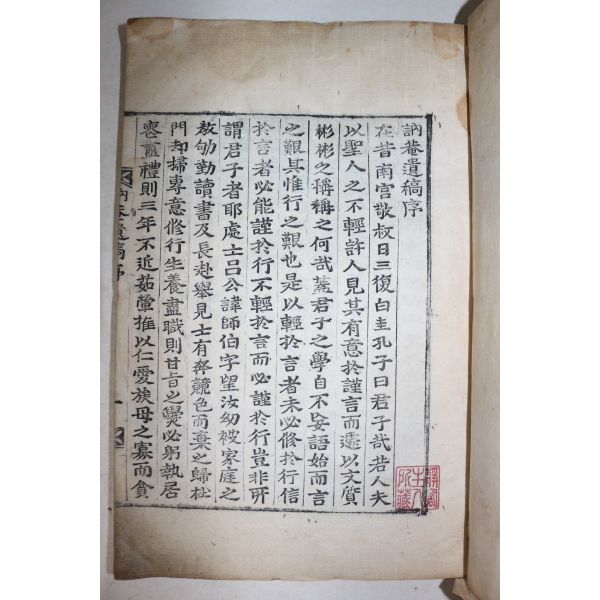 訥菴遺稿序
在昔南宮敬叔日三復白圭孔子曰君子哉若人夫
以聖人之不輕許人見其有意於謹言而遽以文質
彬彬之稱稱之何哉蓋君子之學自不妄語始而言
之艱其惟行之艱也是以輕於言者未必修於行信
於言者必能謹於行不輕於言而必謹於行豈非所
謂君子者耶處士呂公諱師伯字望汝幼被家庭之
教劬勤讀書及長赴舉見士有奔競色而棄之歸杜
門却掃專意修行生養盡職則甘旨之爨必躬執居
喪盡禮則三年不近茹葷推以仁愛族母之寡而貧
訥菴遺稿序
一
主人
所藏